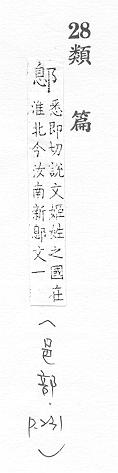 28
類篇
鄎悉即切說文姬姓之國在
淮北今汝南新鄎文一
(邑部.p.231)